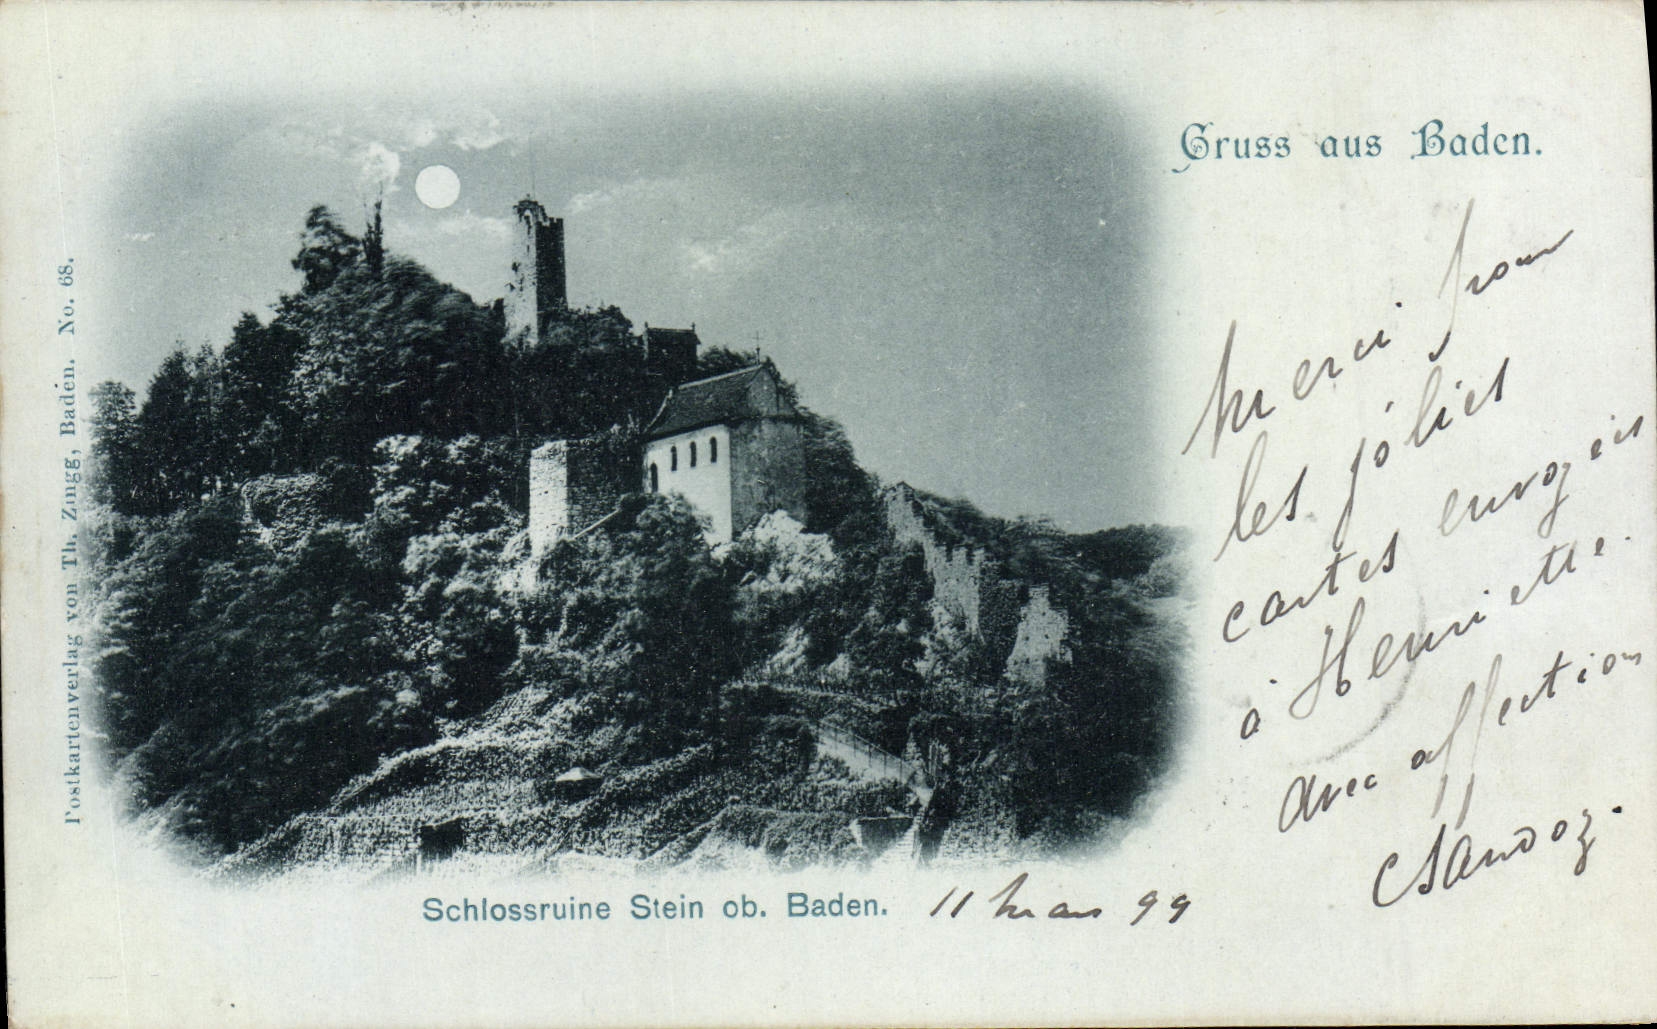 Gruss aus Baden.
Merci pour
les jolies
cartes envoyées
à Henriette.
avec affection
CSandoz.
Schlossruine Stein ob. Baden. 11 Mars 99
Postkartenverlag von Th. Zingg, Baden. No. 68.